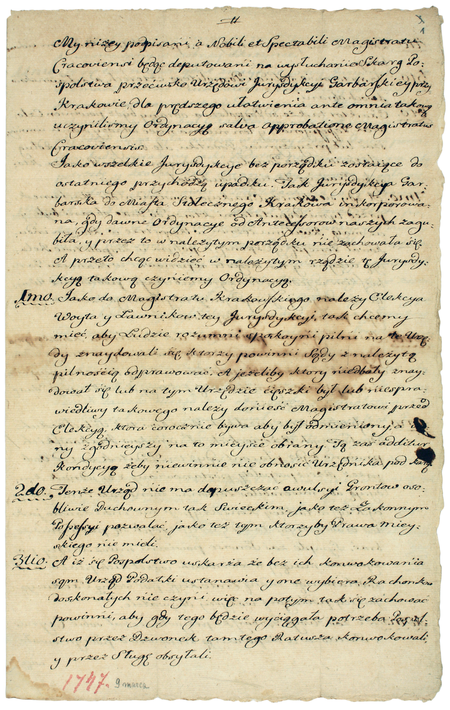 My niżey podpisani a Nobili et Spectabili Magistratu
Cracoviensi będąc deputowani na wysłuchanie Skarg Po-
spolstwa przeciwko Urzędowi Jurysdykcyi Garbarskiey przy
Krakowie dla prędszego ułatwienia ante omnia takową
uczyniliśmy Ordynacyą salva approbatione Magistratus
Cracoviensis.
Jako wszelkie Jurysdykcye bez porządku zostaiące do
ostatniego przychodzą upadku. Tak Jurysdykcya Gar-
barska do Miasta Stołecznego Krakowa inkorporowa-
na, gdy dawne Ordynacye od Antecessorow naszych zagu-
biła, y przez to w należytym porządku nie zachowała się
A przeto chcąc widzieć w należytym rządzie tę Jurysdy-
kcyą takową czyniemy Ordynacyą.
1mo. Jako do Magistratu Krakowskiego należy Elekcya
Woyta y Ławnikow tey Jurysdykcyi, tak chcemy
mieć, aby Ludzie rozumni spokoyni pilni na te Urzę-
dy znaydowali się ktorzy powinni Sądy z należytą
pilnością odprawować. A jeżeliby ktory niedbały znay-
dował się lub na tym Urzędzie ciężki był lub niespra-
wiedliwy takowego należy donieść Magistratowi przed
Elekcyą, ktora corocznie bywa aby był odmieniony a in-
ny zgodnieyszy na to mieysce obrany Tą zaś addita
Kondycyą żeby niewinnie nie obnosić Urzędnika pod karą
2do. Tenże Urząd nie ma dopuszczać awulsyi Grontow oso-
bliwie Duchownym tak Swieckim, jako też Zakonnym
Possessyi pozwalać, jako też tym ktorzyby Prawa miey-
skiego nie mieli.
3tio. A iż się Pospolstwo uskarża że bez ich konwokowania
sam Urząd Podatki ustanawia y one wybiera, Rachonkow
doskonałych nie czyni więc na potym tak się zachować
powinni, aby gdy tego będzie wyciągała potrzeba Pospol-
stwo przez Dzwonek tamtego Ratusza konwokowali
y przez Sługę obsyłali.
1747. 9 marca